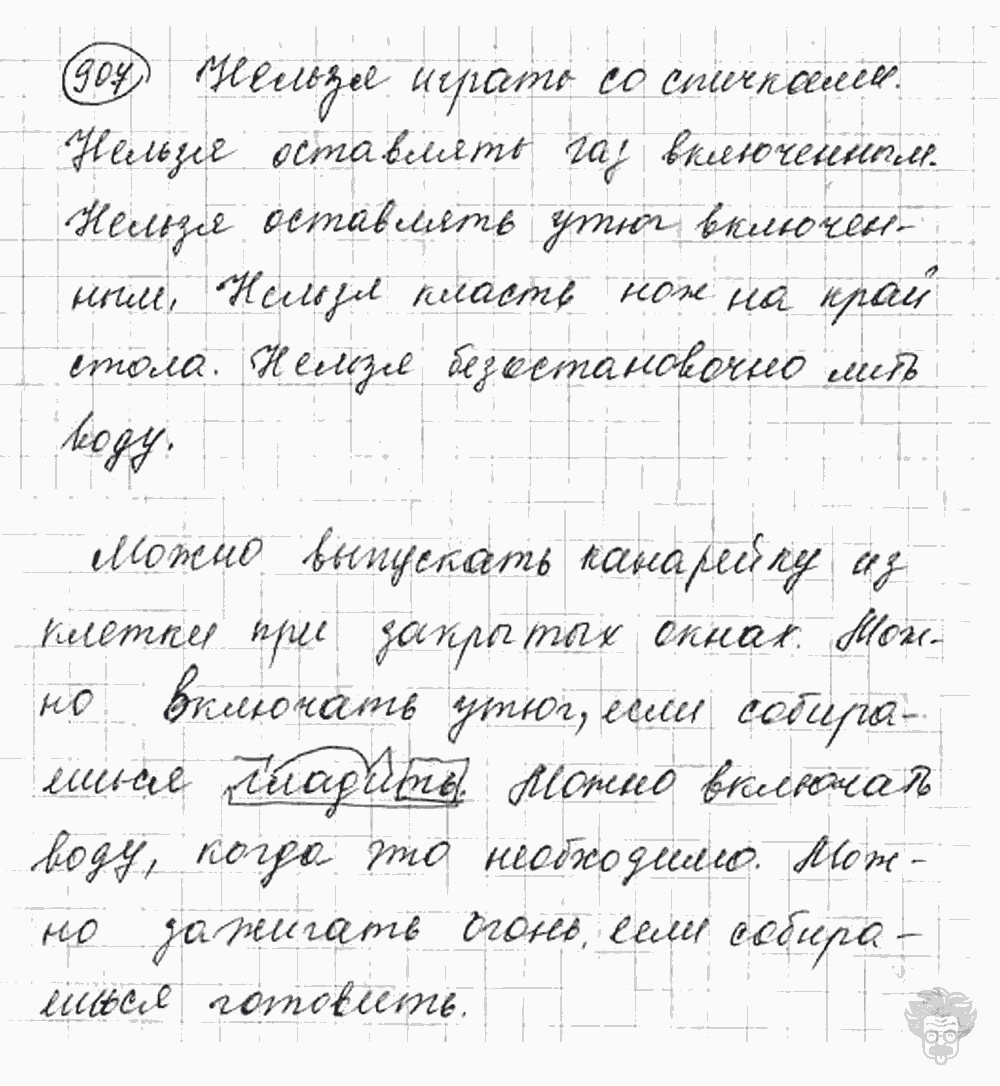 907 Нельзя играть со спичками.
Нельзя оставлять газ включенным.
Нельзя оставлять утюг включен-
ным. Нельзя класть нож на край
стола. Нельзя безостановочно лить
воду.
Можно выпускать канарейку из
клетки при закрытых окнах. Мож-
но включать утюг, если собира-
ешься гладить. Можно включать
воду, когда это необходимо. Мож-
но зажигать огонь, если собира-
ешься готовить.